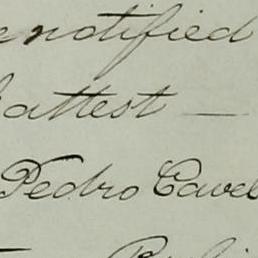 notified
attest —
Pedro Cavel